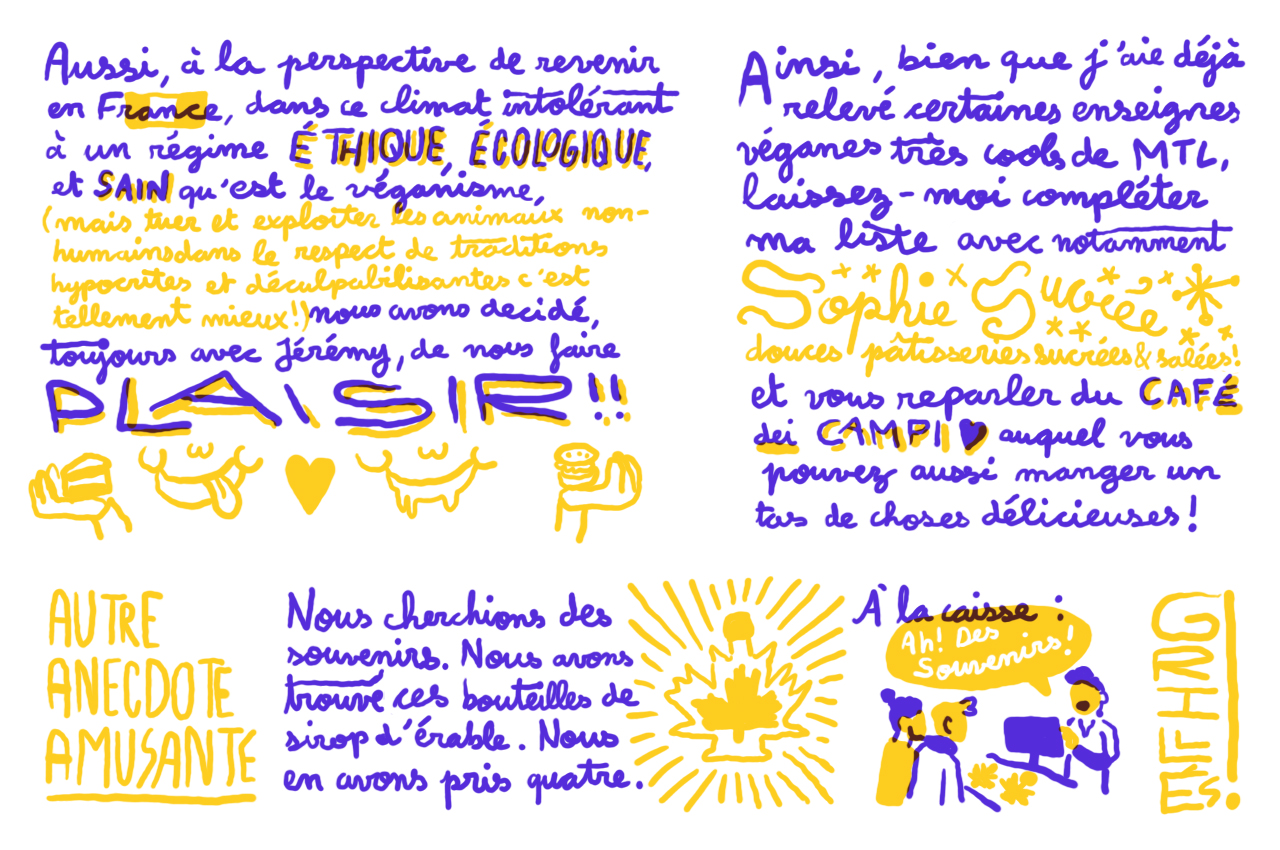 Aussi, à la perspective de revenir
en France, dans ce climat intolérant
à un régime ÉTHIQUE, ÉCOLOGIQUE,
et SAIN qu'est le véganisme,
(mais tuer et exploiter les animaux non-
humains dans le respect de traditions
hypocrites et déculpabilisantes c'est
tellement mieux!) nous avons decidé,
toujours avec Jérémy, de nous faire
PLAISIR!!
Ainsi, bien que j'aie déjà
relevé certaines enseignes
véganes très cools de MTL,
laissez-moi compléter
ma liste avec notamment
Sophie Sucrée
douces pâtisseries sucrées & salées!
et vous reparler du CAFÉ
dei CAMPI auquel vous
pouvez aussi manger un
tas de choses délicieuses!
AUTRE
ANECDOTE
AMUSANTE
Nous cherchions des
souvenirs. Nous avons
trouvé ces bouteilles de
sirop d'érable. Nous
en avons pris quatre.
À la caisse :
Ah! Des
Souvenirs!
GRILLÉS!